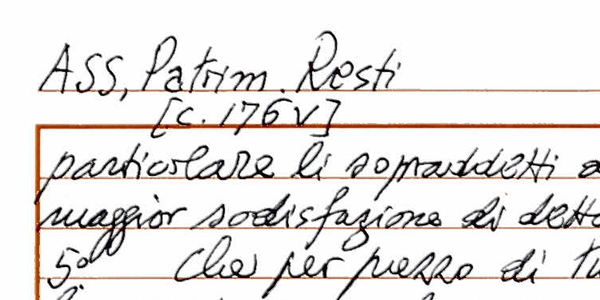 ASS, Patrim. Resti
[c. 176v]
particolare li sopraddetti
maggior sodisfazione di detto
5° Che per prezzo di